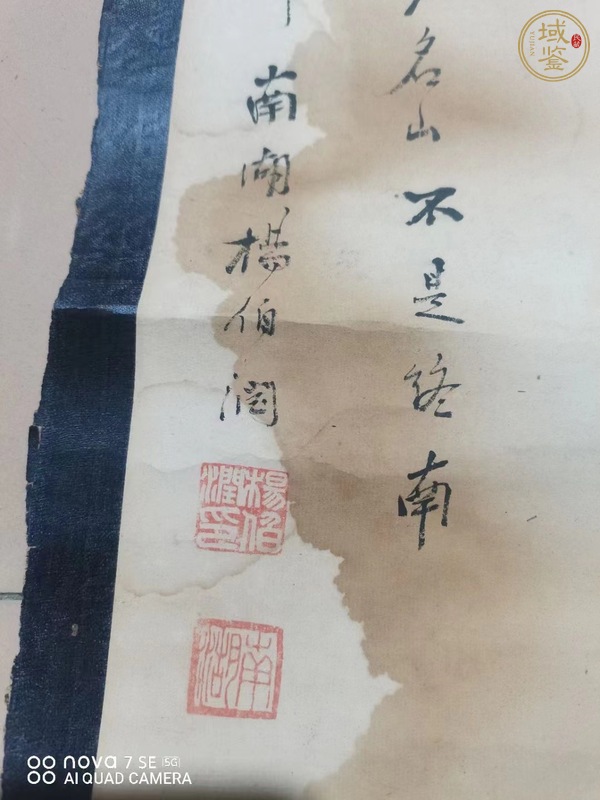 名山不是終南
南湖楊伯潤
楊伯潤印
南湖
域鉴
YUJIAN
nova 7 SE 5G
AI QUAD CAMERA